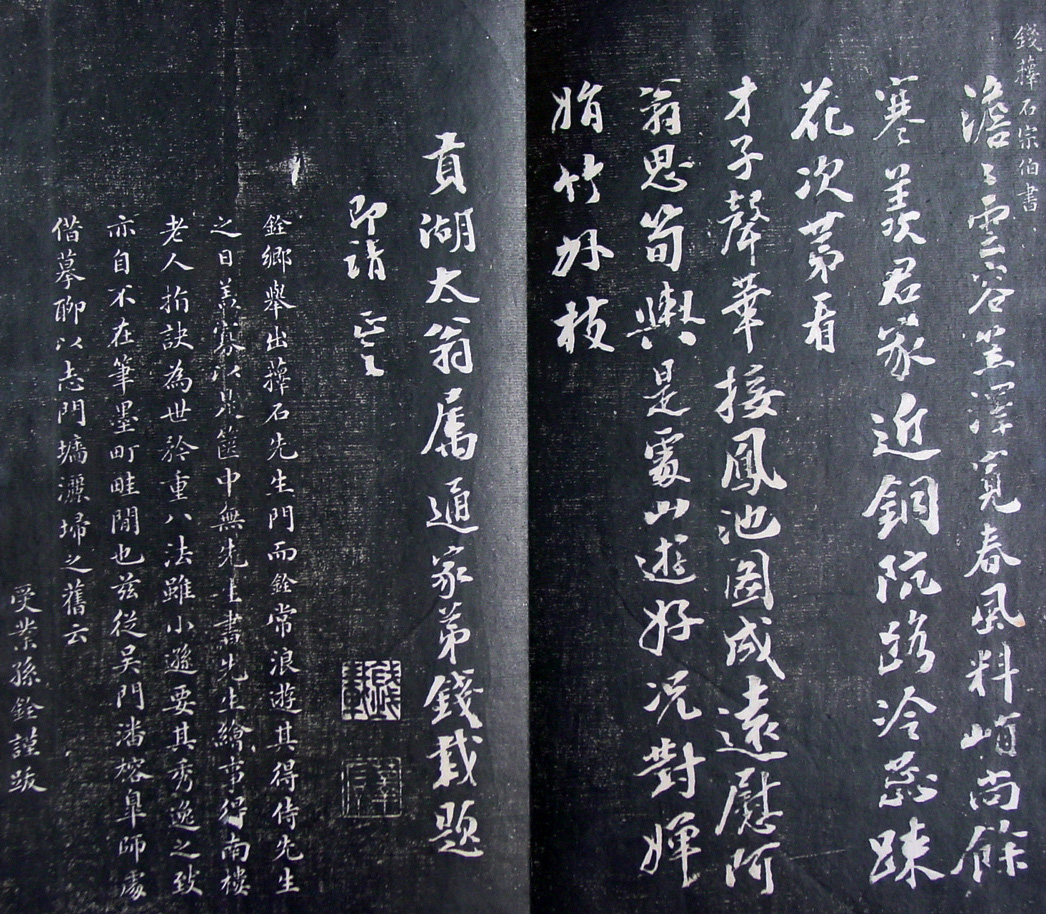 錢蘀石宗伯書
澹澹雲容笠澤寬春風料峭尚餘
寒羨君家近銅阬路冷蕊疎
花次第看
才子聲華接鳳池圖成遠慰阿
翁思筍輿是處山遊好況對嬋
娟竹外枝
貢湖太翁属通家弟錢載題
即請正之
銓鄉舉出蘀石先生門而銓常浪遊其得侍先生
之日盖寡以是篋中無先生書先生繪事得南樓
老人指訣為世矜重八法雖小遜要其秀逸之致
亦自不在筆墨町畦間也茲從吳門潘榕皐師處
借摹聊以志門墻灑埽之舊云
受業孫銓謹跋